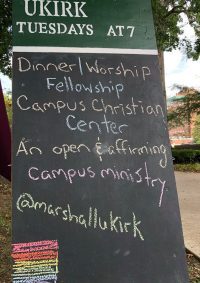 UKIRK
TUESDAYS AT 7
Dinner/Worship
Fellowship
Campus Christian
Center
An open & affirming
campus ministry
@marshallukirk